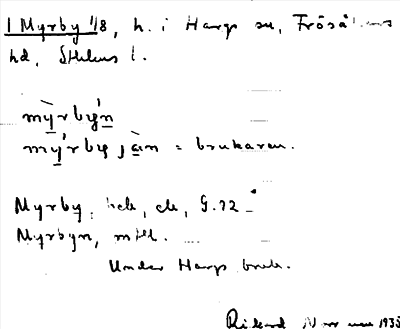 1 Myrby 1/8, h. i Hargs sn, Frösåkers
hd, Sthlms l.
mỳrbýn
mý'rby, jàn = brukaren.
Myrby,
Myrbyn, mtl.
Under Hargs bruk.
Rikard 1935